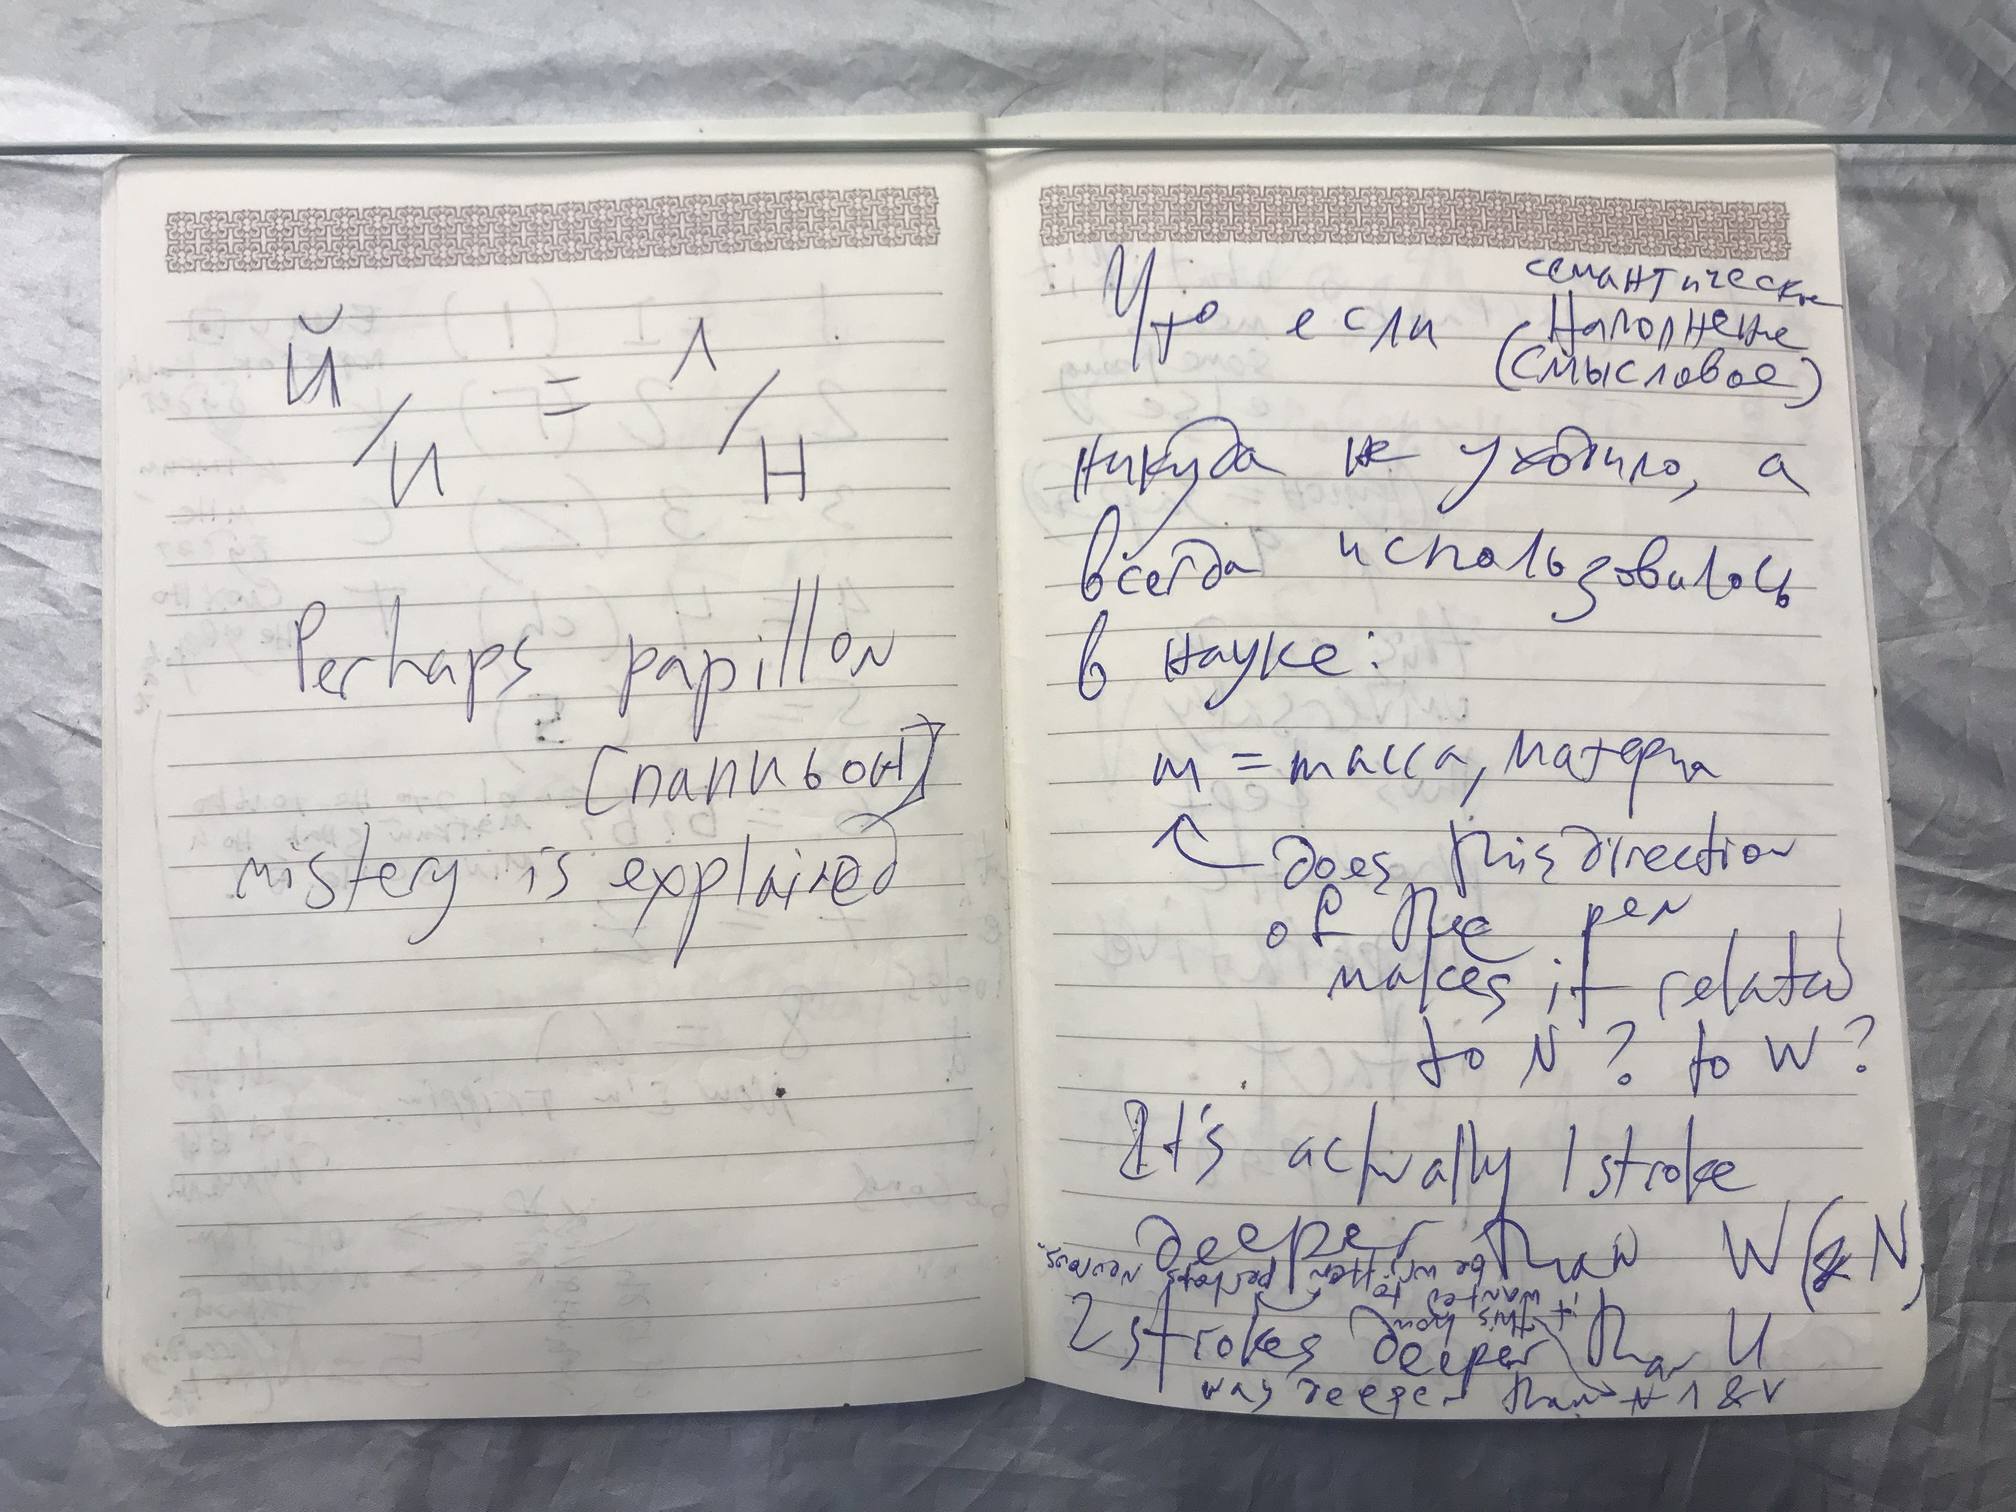 Й/И = Λ/Н
Perhaps papillon
[папиьон]
mistery is explained
семантическое
Что если наполнение
(смысловое)
никуда не уходило, а
всегда использовалось
в науке:
m = масса, материя
does this direction
of the pen
makes it related
to N? to W?
It's actually 1 stroke
deeper than W (& N)
2 strokes deeper than И
way deeper than N Λ & V
this how
it wanted to
be written perhaps